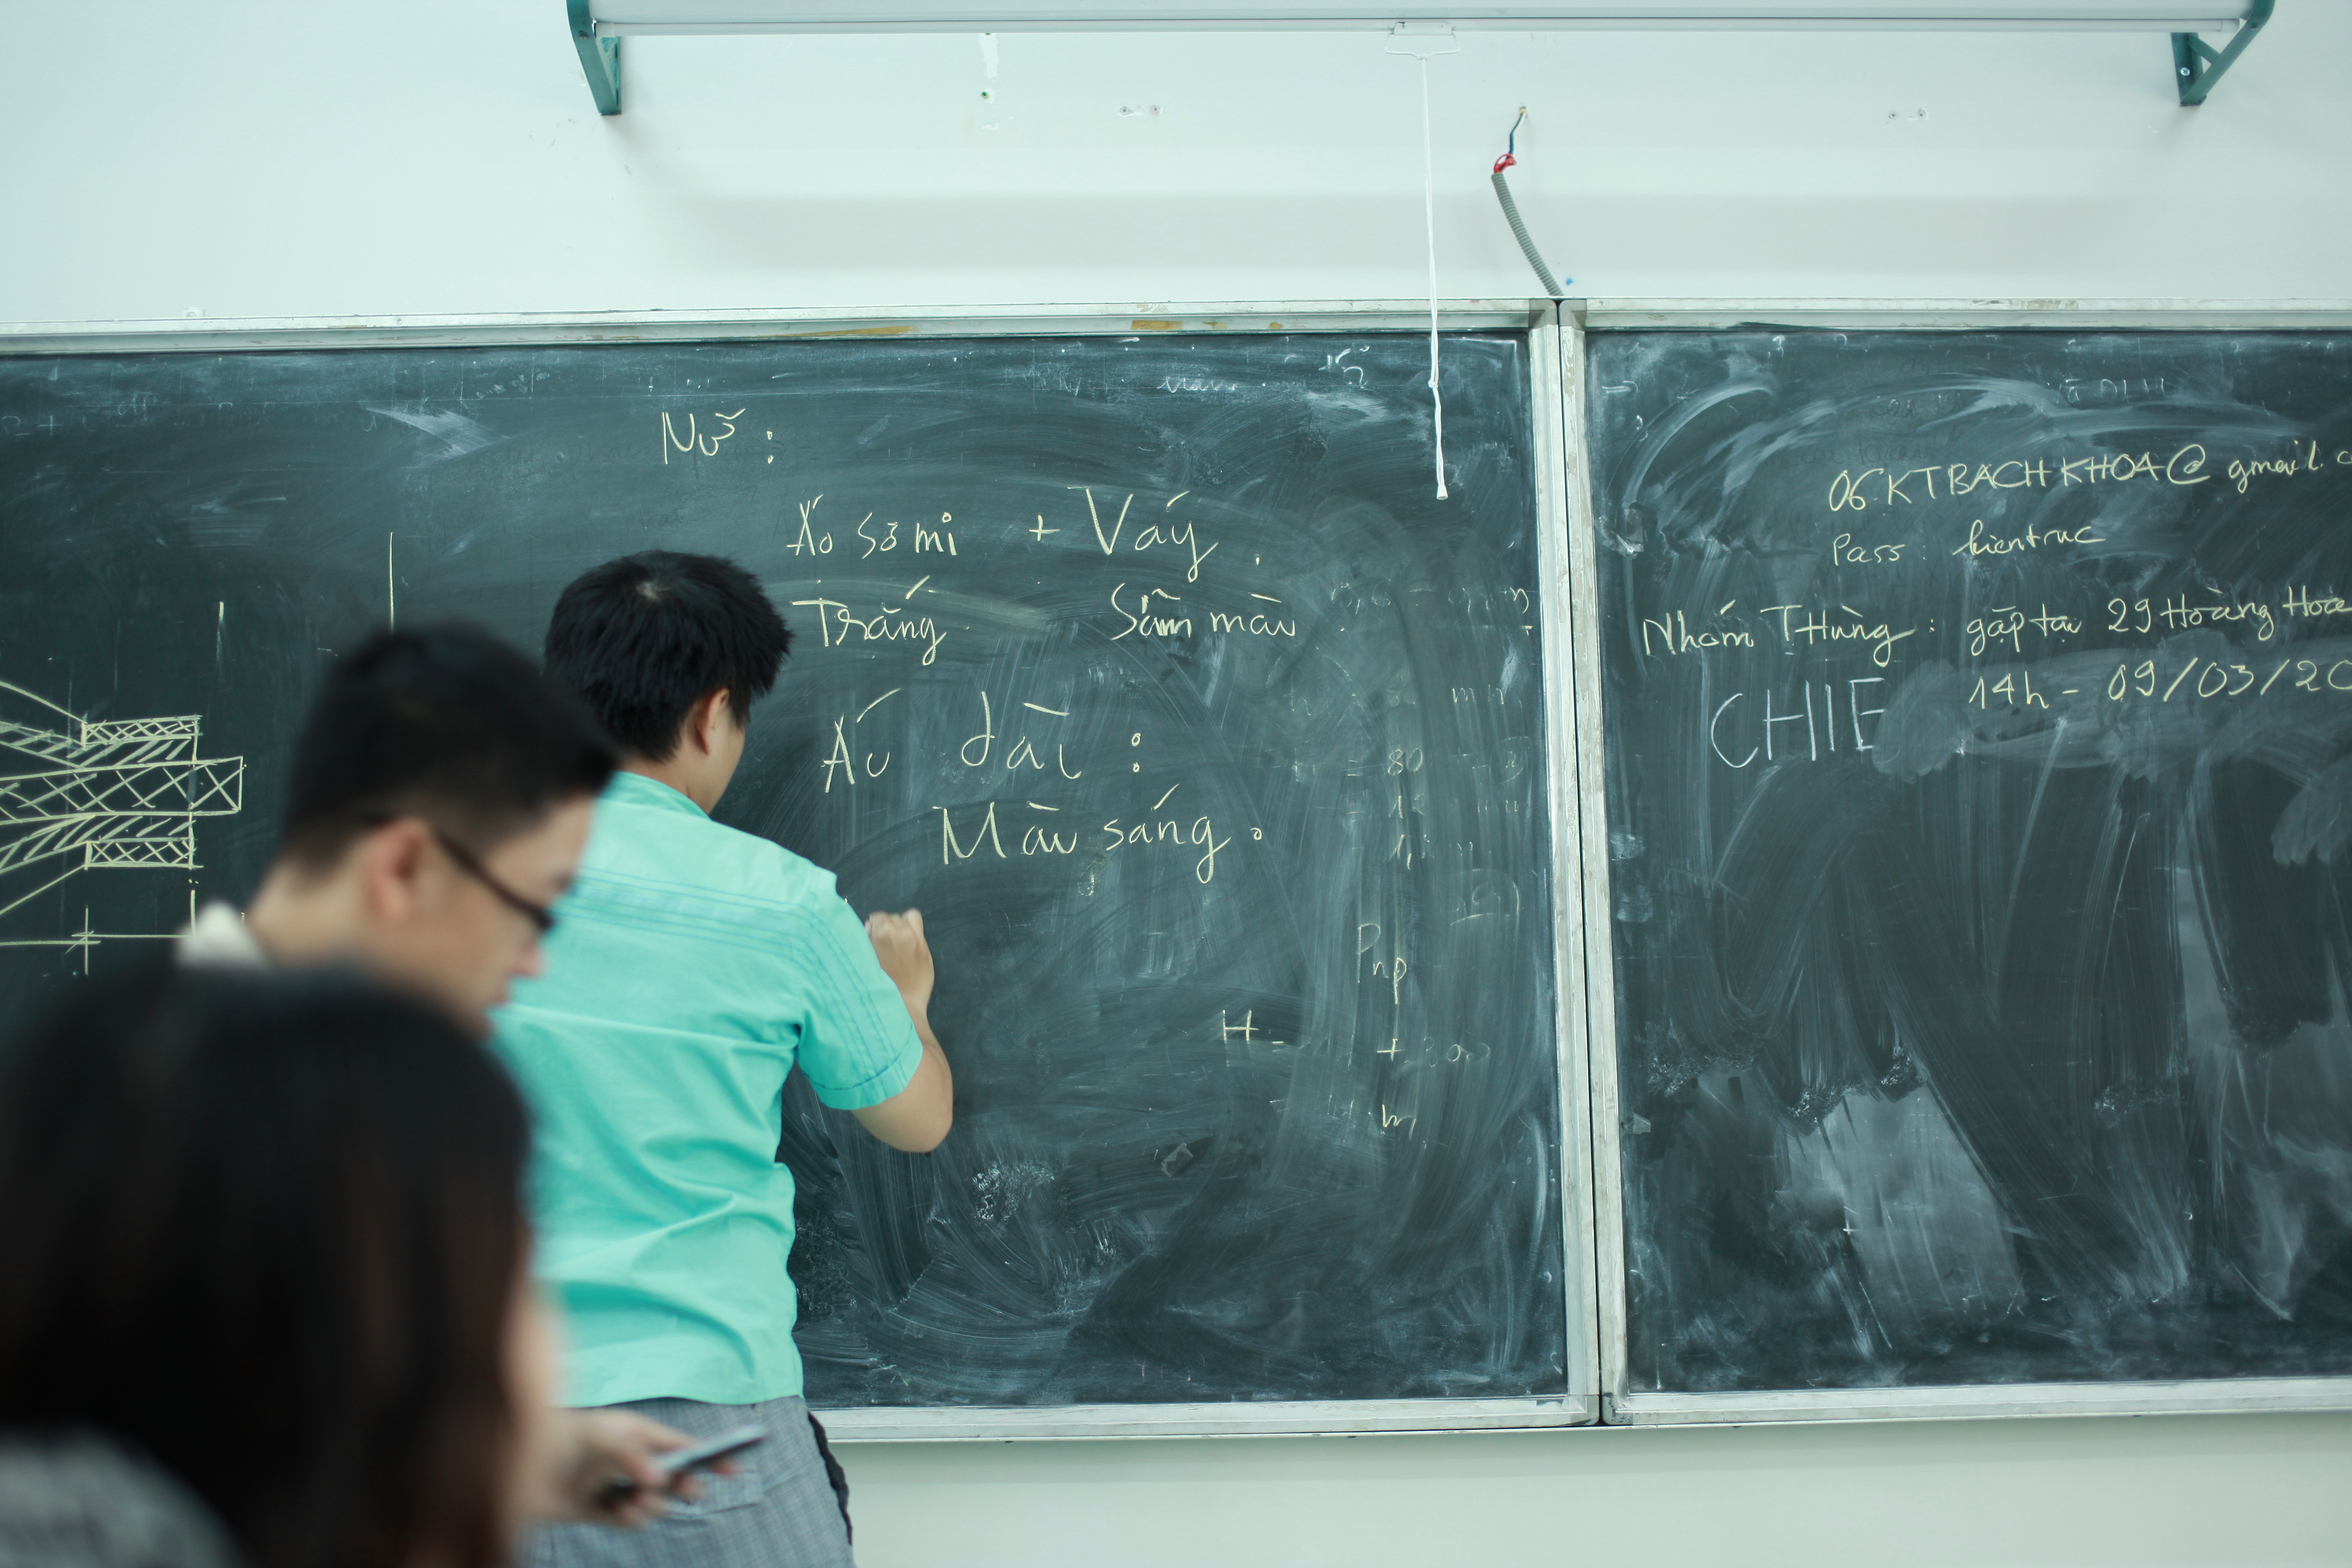 Nữ :
Áo sơ mi + Váy .
Trắng Sẫm màu
Áo dài :
Màu sáng .
Pnp
H -
06KTBACHKHOA@gmail.
Pass : kientruc
Nhóm T Hùng : gặp tại 29 Hoàng Hoa
14h - 09/03/20
CHIE